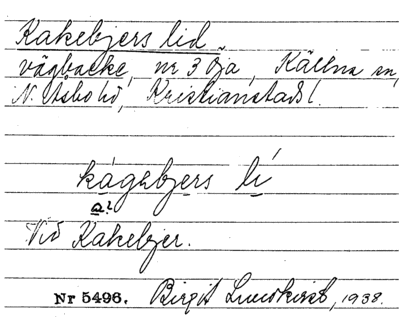 Kakebjers lid
vägbacke, nr 3 Öja, Källna sn,
N. Åsbo hd, Kristianstads l.
kágebjers lí
Vid Kakebjer.
Nr 5496. Birgit Lundkvist, 1938.